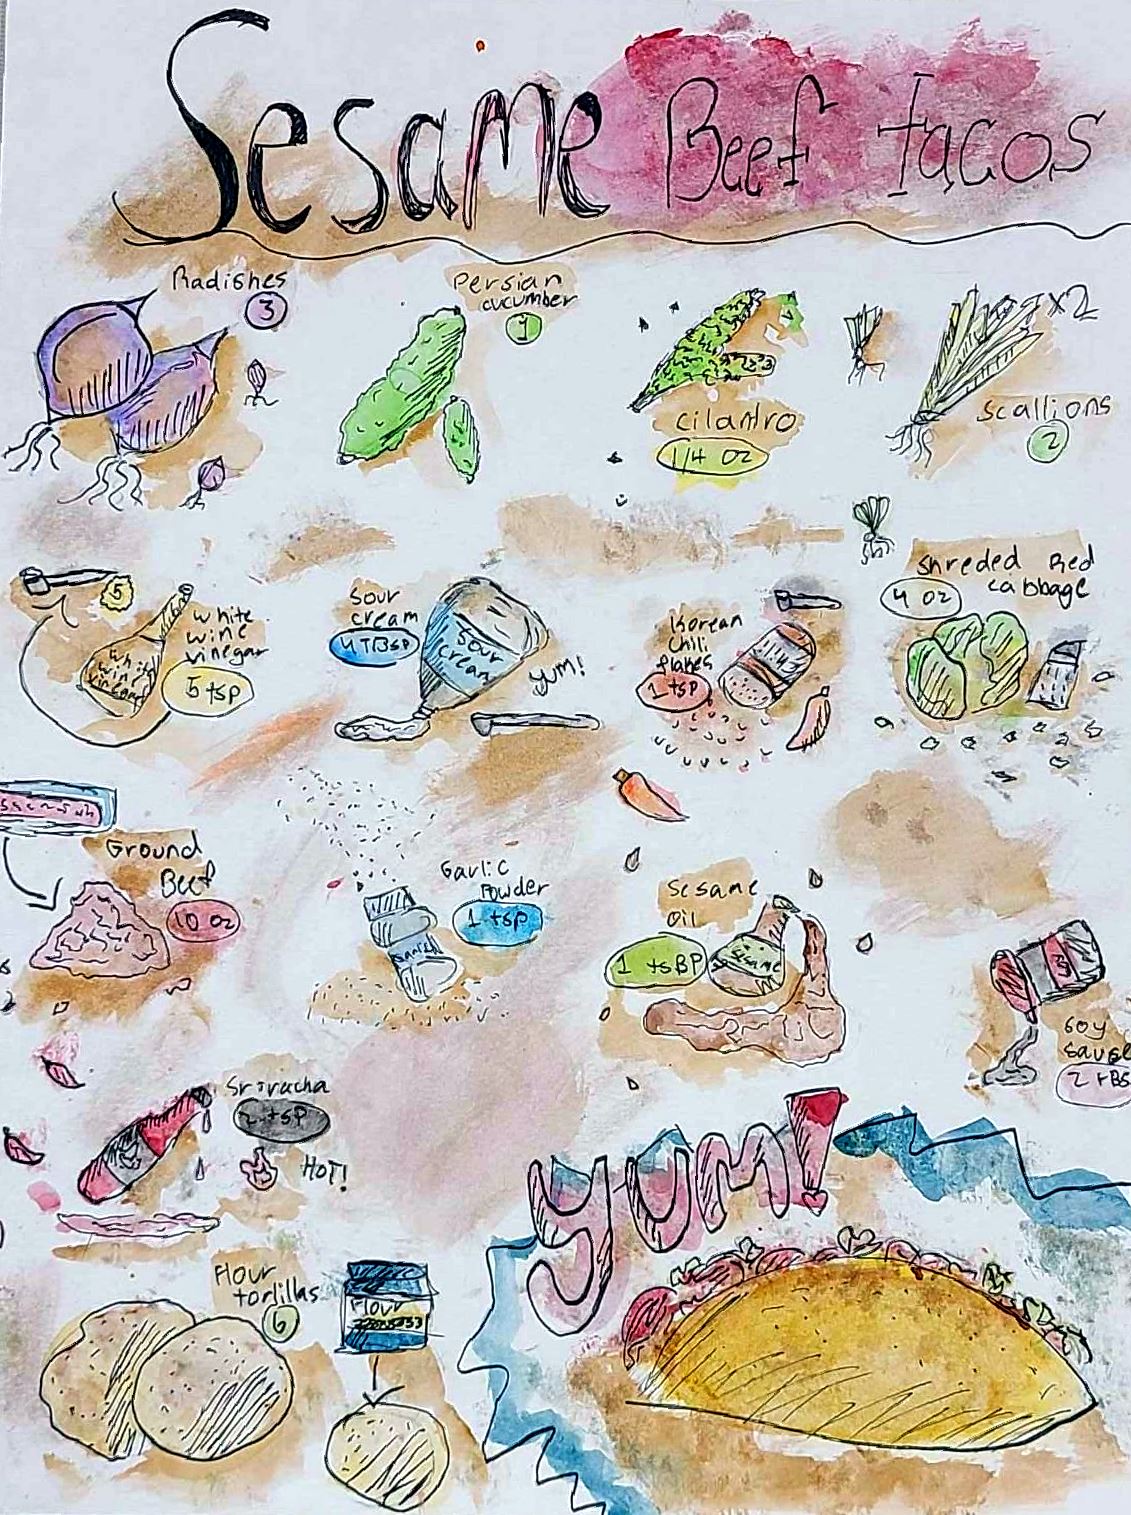 Sesame Beef tacos
Radishes
3
Persian
cucumber
1
cilantro
1/4 oz
x2
scallions
2
5
white
wine
vinegar
5 tsp
white
wine
vinegar
Sour
cream
4 TBsp
Sour
cream
yum!
Korean
chili
flakes
1 tsp
Shreded Red
cabbage
4 oz
Ground
Beef
10 oz
Garlic
Powder
1 tsp
Sesame
oil
1 tsBP
Sesame
Soy
sause
2 tBS
Sriracha
2 tsp
HOT!
Flour
tortillas
6
Flour
yum!